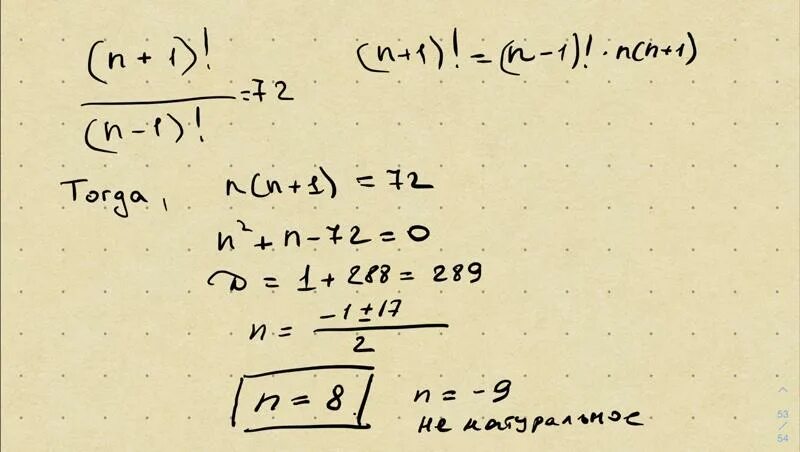 (n + 1)! / (n - 1)! = 72
(n+1)! = (n-1)! · n(n+1)
Тогда, n(n+1) = 72
n² + n - 72 = 0
D = 1 + 288 = 289
n = (-1 ± 17) / 2
n = 8 n = -9
не натуральное
53
/
54